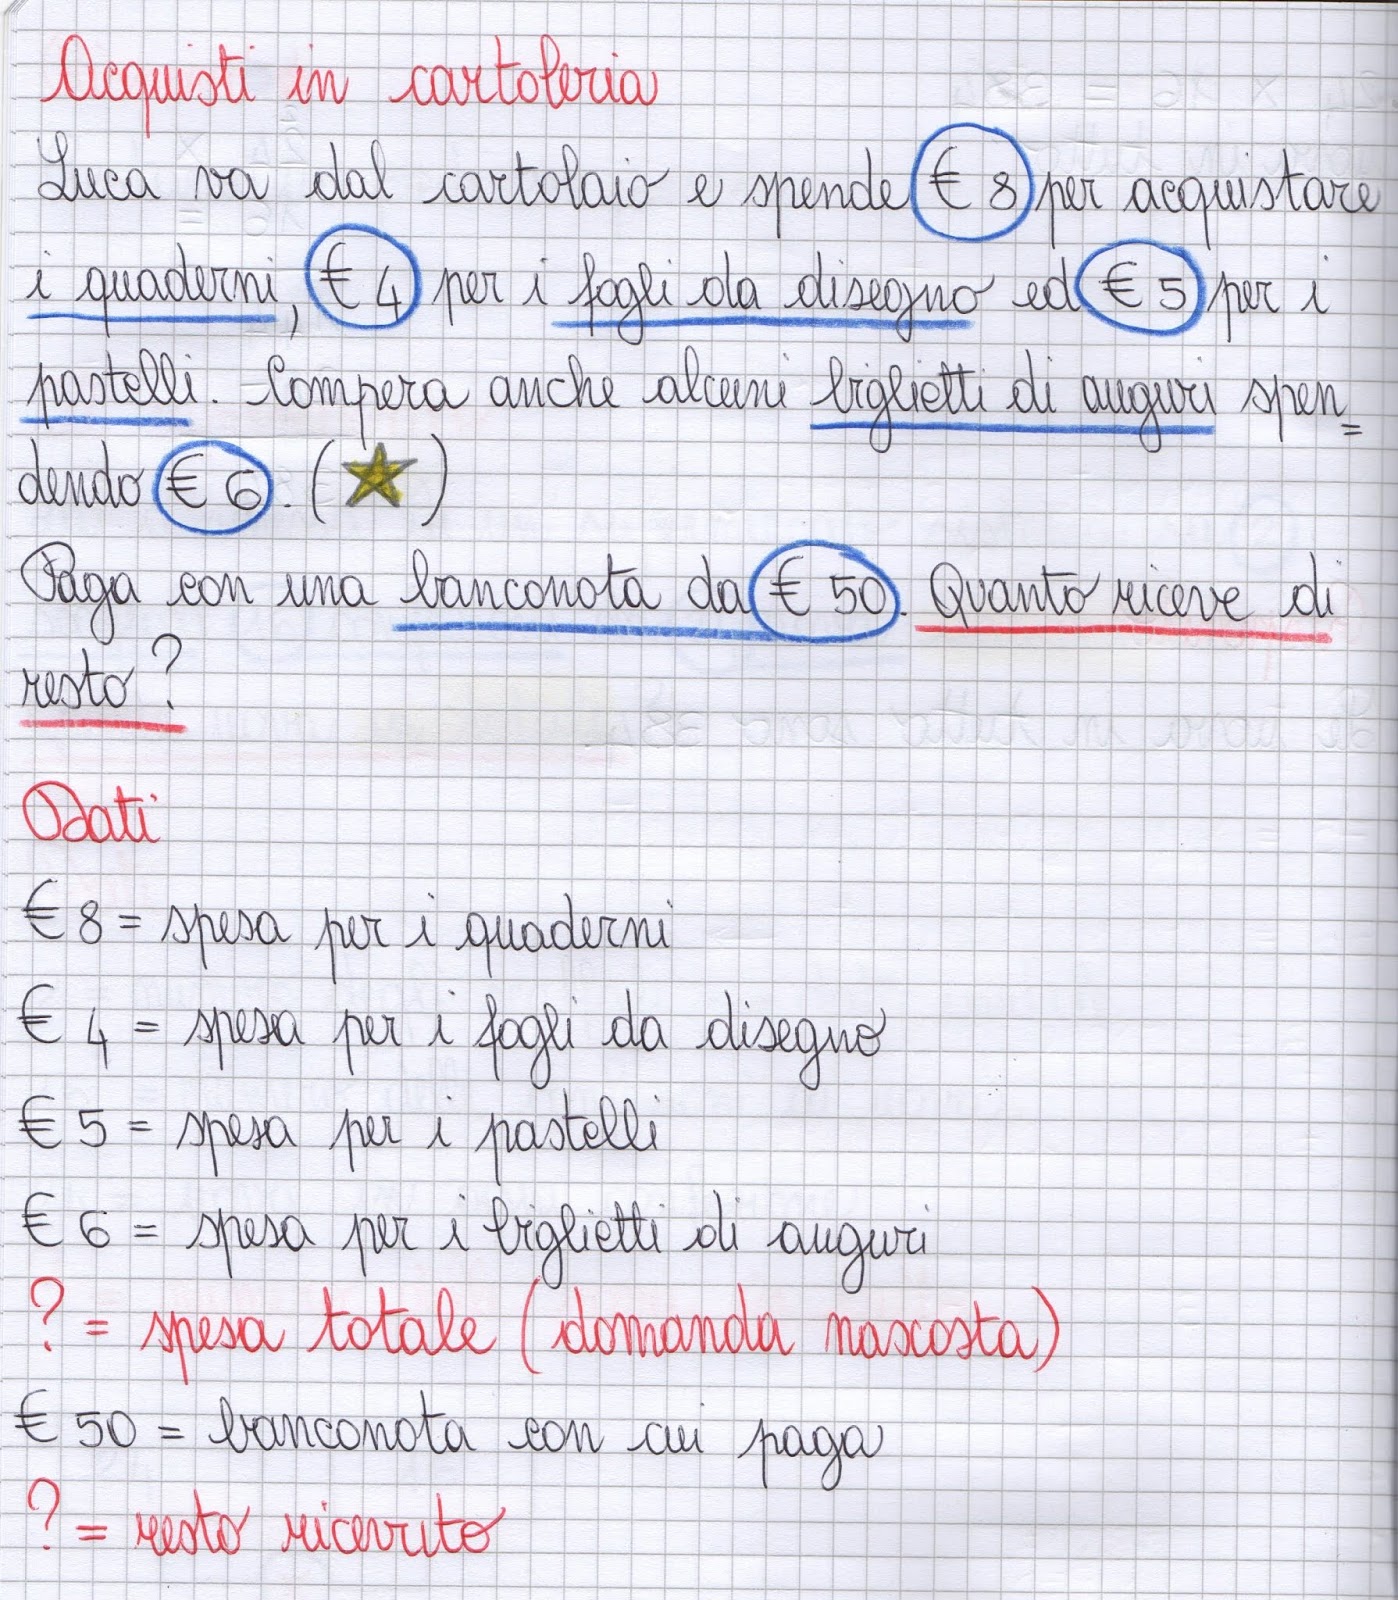 Acquisti in cartoleria
Luca va dal cartolaio e spende € 8 per acquistare
i quaderni, € 4 per i fogli da disegno ed € 5 per i
pastelli. Compera anche alcuni biglietti di auguri spen=
dendo € 6. ( )
Paga con una banconota da € 50. Quanto riceve di
resto?
Dati
€ 8 = spesa per i quaderni
€ 4 = spesa per i fogli da disegno
€ 5 = spesa per i pastelli
€ 6 = spesa per i biglietti di auguri
? = spesa totale (domanda nascosta)
€ 50 = banconota con cui paga
? = resto ricevuto